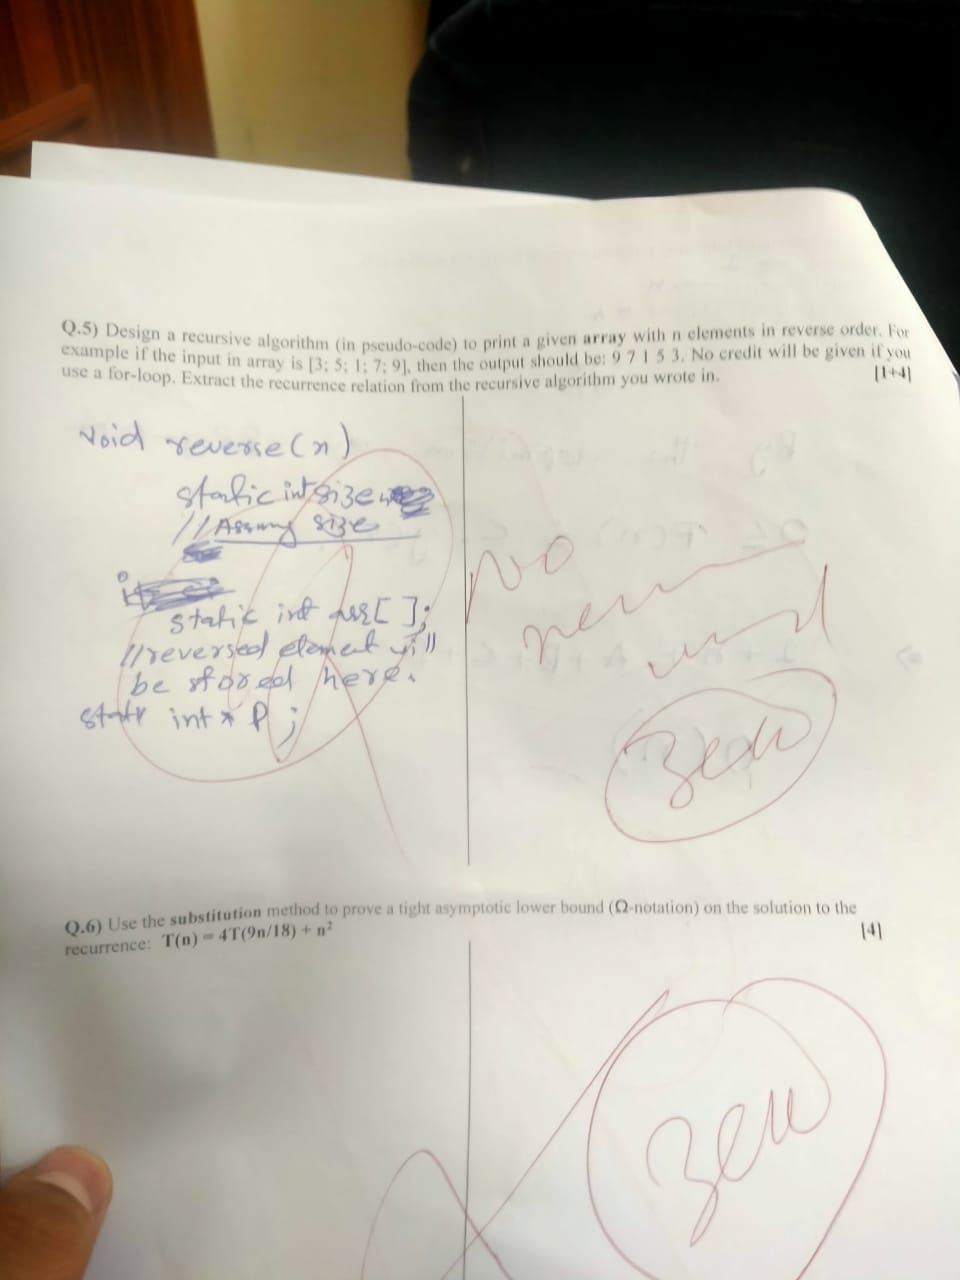 Q.5) Design a recursive algorithm (in pseudo-code) to print a given array with n elements in reverse order. For
example if the input in array is [3; 5; 1; 7; 9], then the output should be: 9 7 1 5 3. No credit will be given if you
use a for-loop. Extract the recurrence relation from the recursive algorithm you wrote in.
[1+4]
void reverse(n)
static int size
// Assuming size
static int arr[ ];
// reversed element will
be stored here.
int * P ;
No
Zero
Q.6) Use the substitution method to prove a tight asymptotic lower bound (Ω-notation) on the solution to the
recurrence: T(n) = 4T(9n/18) + n²
[4]
Zero